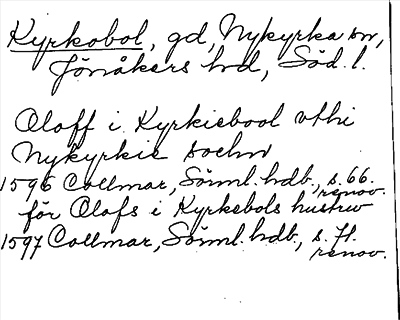 Kyrkobol, gd, Nykyrka sn,
Jönåkers hd, Söd. l.
Oloff i Kyrkiebool vthi
Nykyrkie sochn
1596 Collmar, Sörml. hdb., s. 66.
renov.
för Olofs i Kyrkebols hustrv
1597 Collmar, Sörml. hdb., s. 71.
renov.